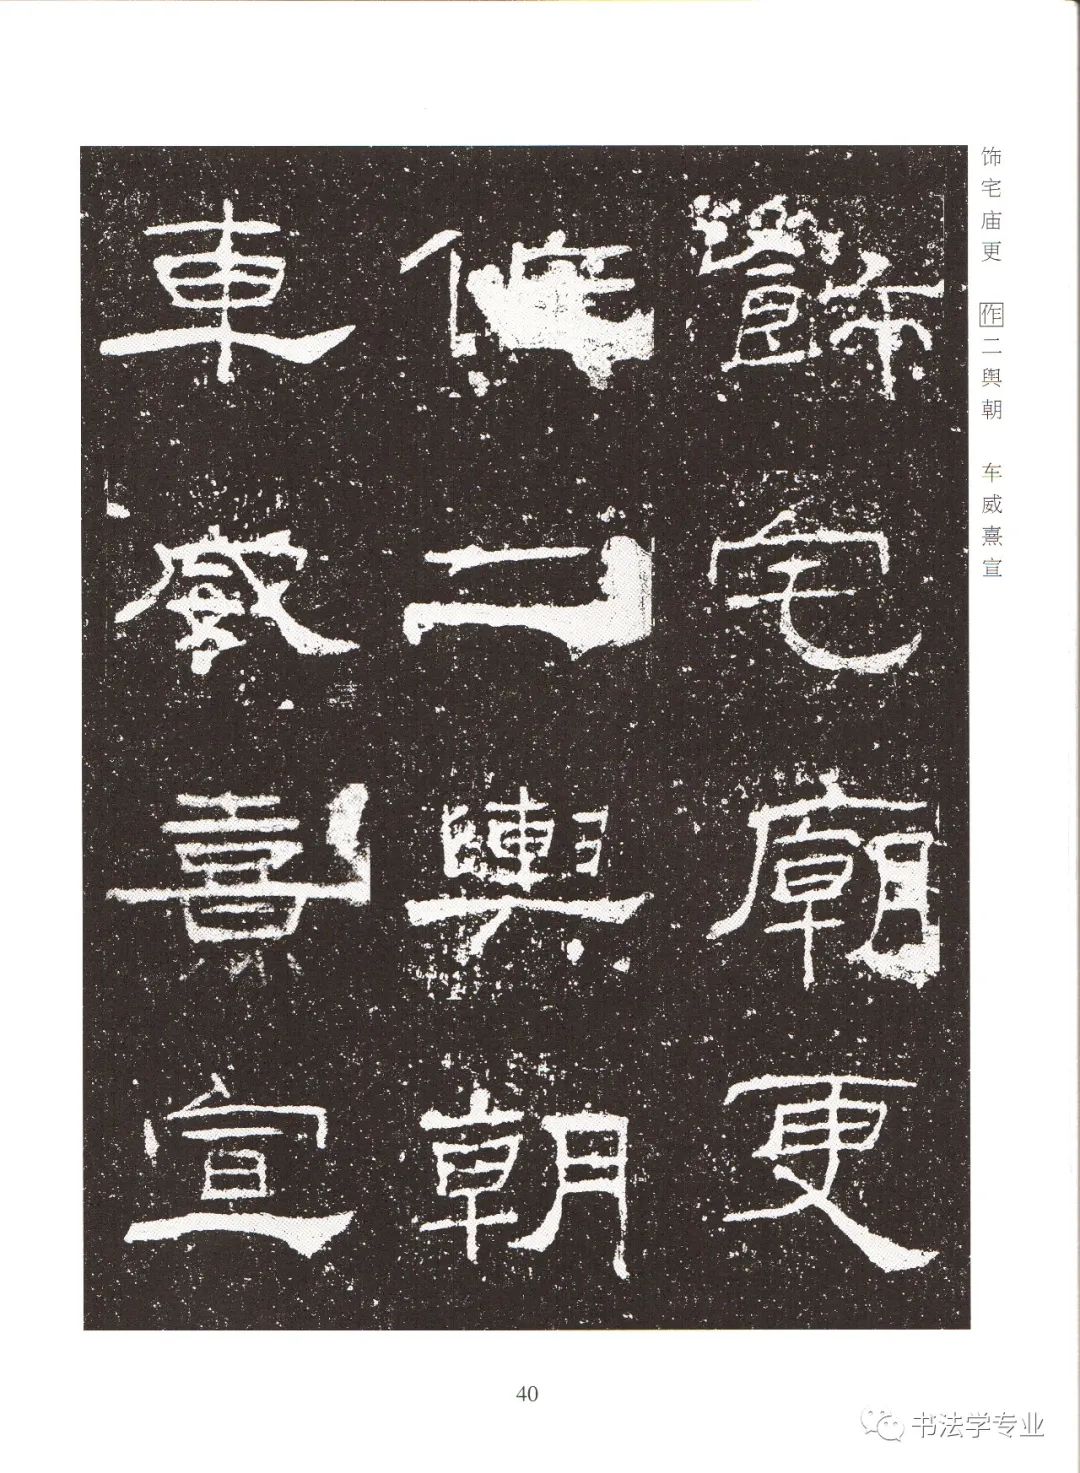 飾宅廟更
作二輿朝
車威熹宣
饰宅庙更 作二舆朝 车威熹宣
40
书法学专业